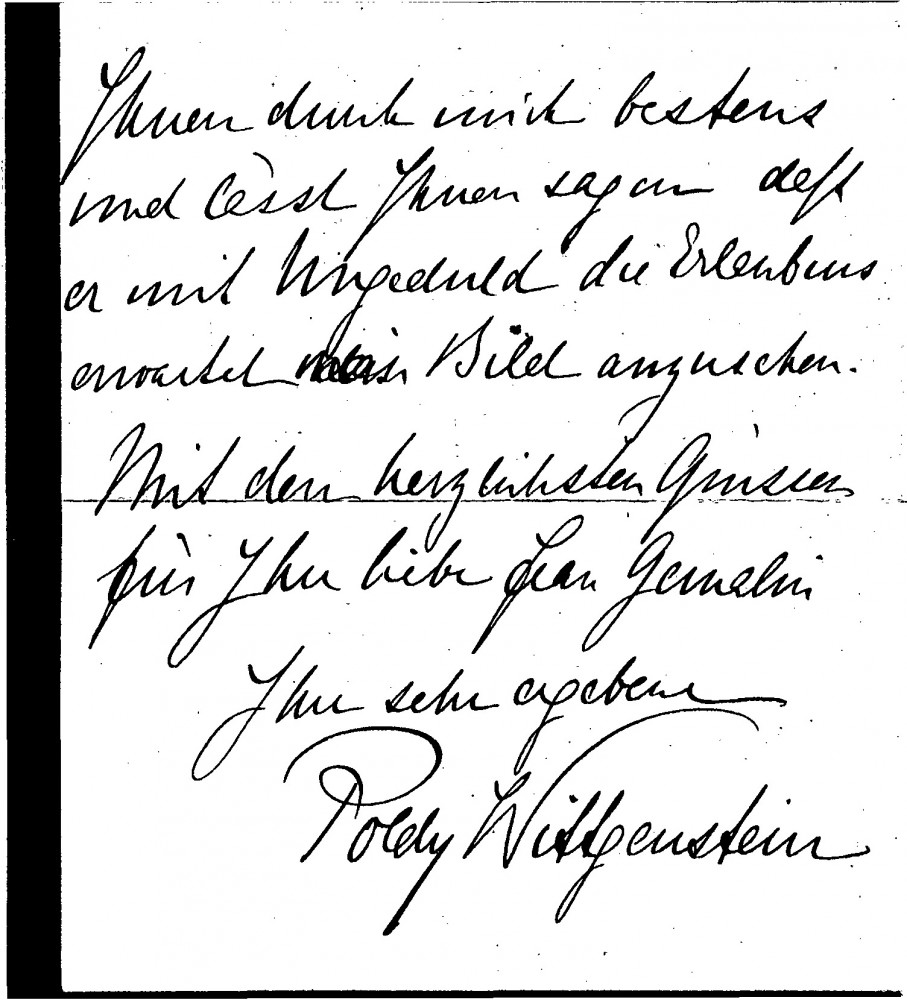 Ihnen durch mich bestens
und lässt Ihnen sagen daß
er mit Ungeduld die Erlaubnis
erwartet mein Bild anzusehen.
Mit den herzlichsten Grüssen
für Ihre liebe Frau Gemalin
Ihre sehr ergebene
Poldy Wittgenstein